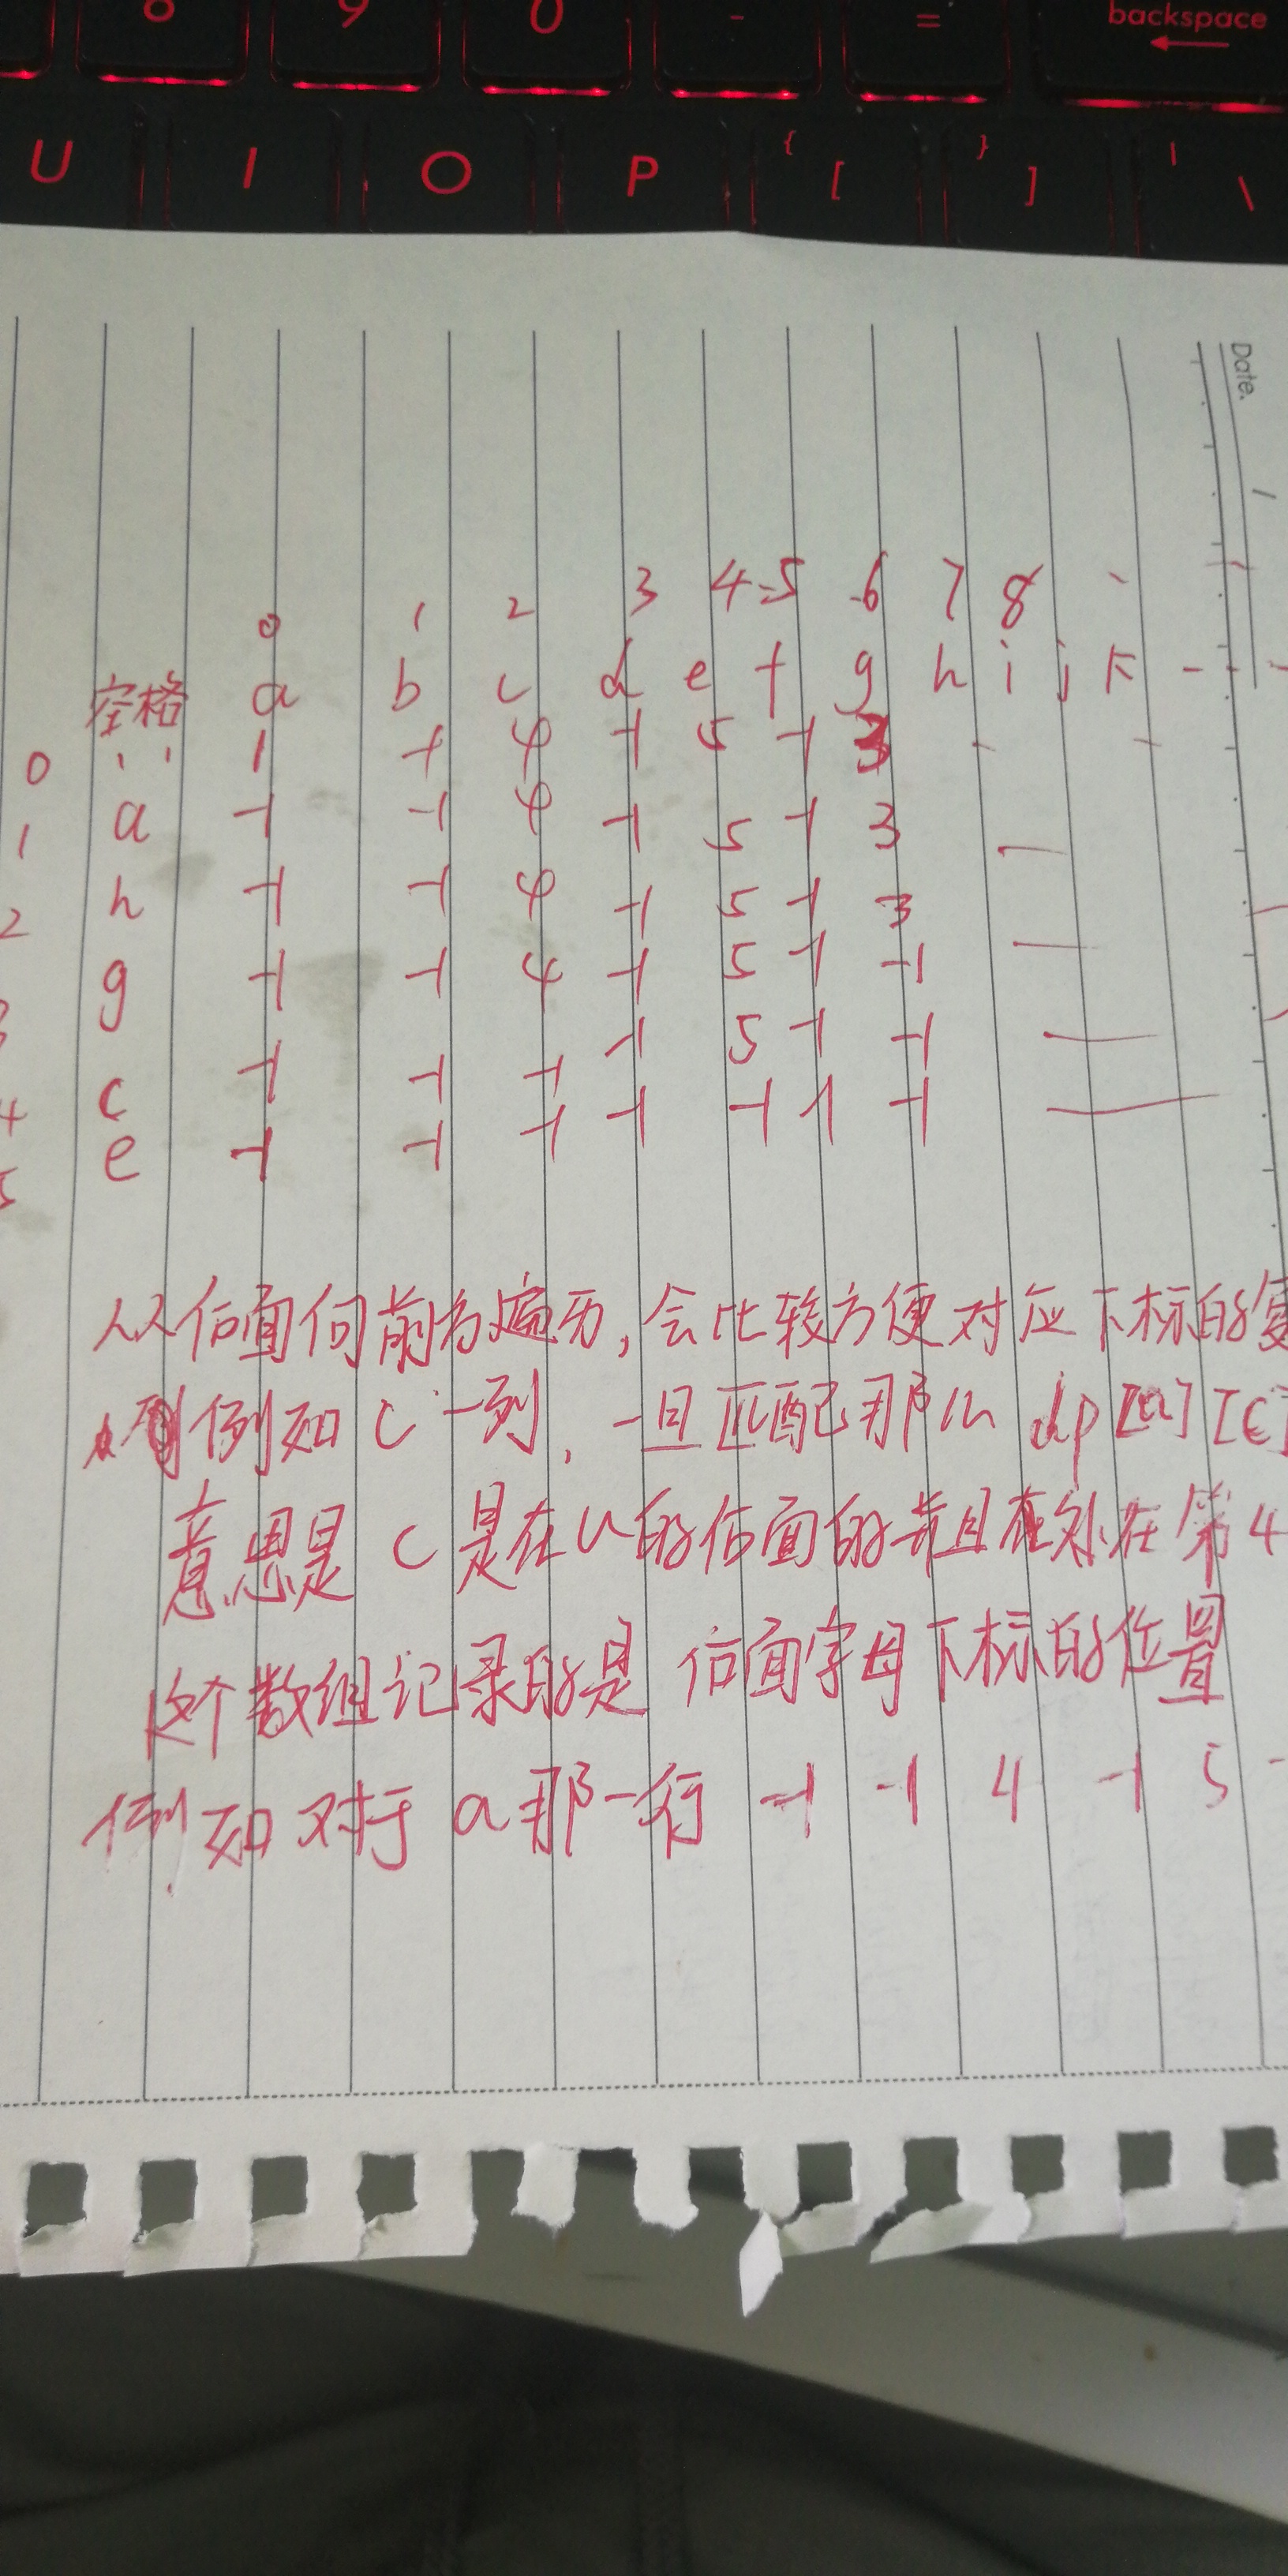 8 9 0 - = backspace
U I O P { [ } ] | \
Date.
0 1 2 3 4 5 6 7 8
空格 a b c d e f g h i j k - - -
0 ' ' 1 -1 4 -1 5 -1 3 - -
1 a -1 -1 4 -1 5 -1 3
2 h -1 -1 4 -1 5 -1 3
3 g -1 -1 4 -1 5 -1 -1
4 c -1 -1 -1 -1 5 -1 -1
5 e -1 -1 -1 -1 -1 -1 -1
从后面向前方遍历,会比较方便对应下标的
例如 c 一列, 一旦匹配那么 dp[a][c]
意思是 c 是在 a 的后面的并且 在第4
这个数组记录的是 后面字母下标的位置
例如对于 a 那一行 -1 -1 4 -1 5 -